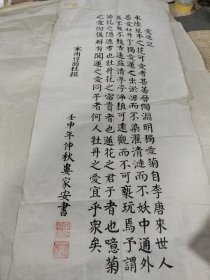 愛蓮説
水陸草木之花可愛者甚蕃晉陶淵明獨愛菊自李唐來世人
甚愛牡丹予獨愛蓮之出淤泥而不染濯清漣而不妖中通外
直不蔓不枝香遠益清亭亭淨植可遠觀而不可褻玩焉予謂
菊花之隱逸者也牡丹花之富貴者也蓮花之君子者也噫菊
之愛陶後鮮有聞蓮之愛同予者何人牡丹之愛宜乎衆矣
宋周頤
壬申年仲秋家安書